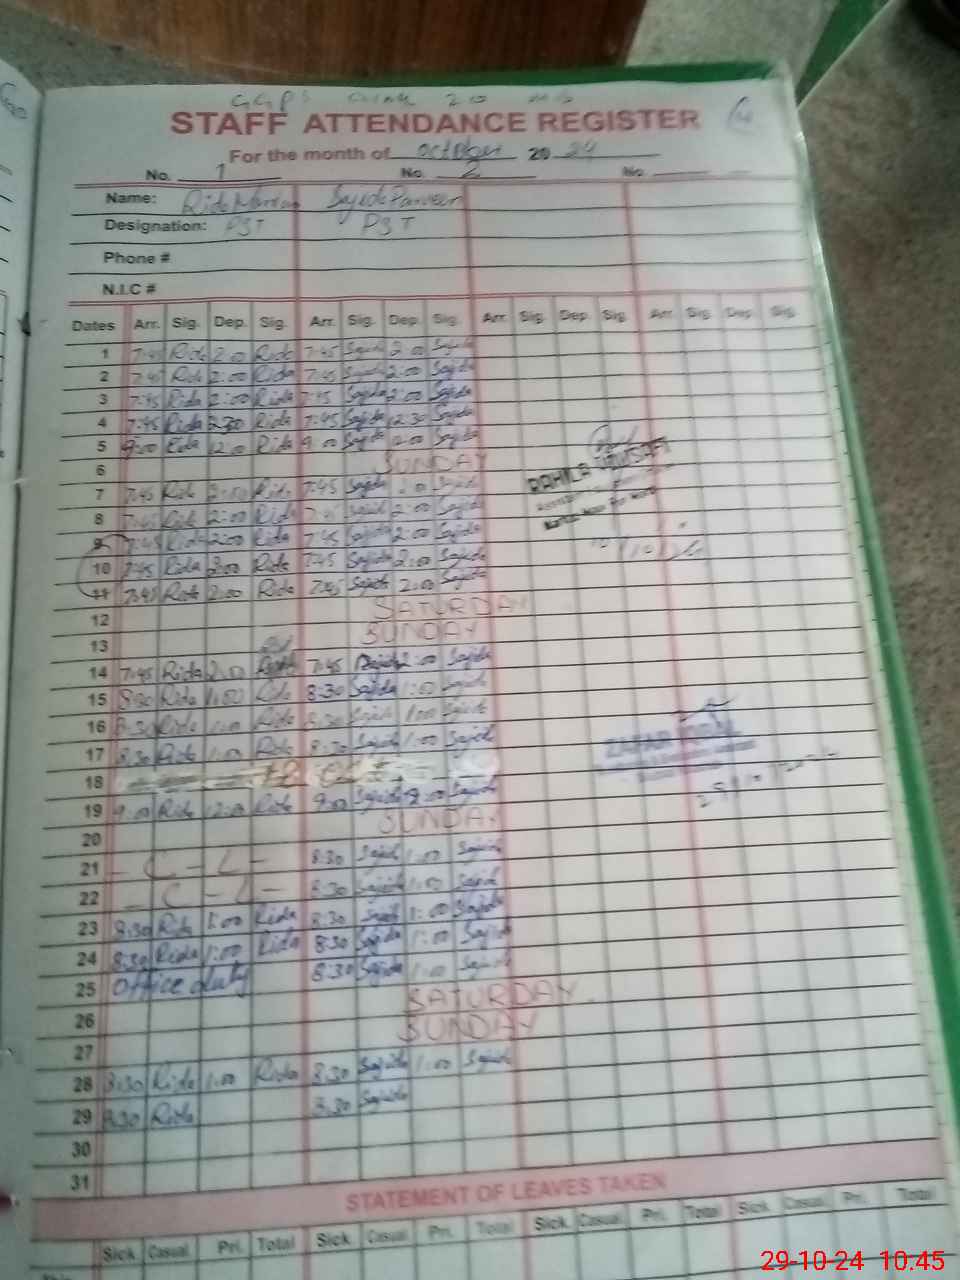 GGPS
STAFF ATTENDANCE REGISTER
For the month of October 20 24
No. 1 No. 2 No.
Name: Rida Sajida Parveen
Designation: PST PST
Phone #
N.I.C #
Dates Arr. Sig. Dep. Sig. Arr. Sig. Dep. Sig. Arr. Sig. Dep. Sig. Arr. Sig. Dep. Sig.
1 7:45 Rida 2:00 Rida 7:45 Sajida 2:00 Sajida
2 7:45 Rida 2:00 Rida 7:45 Sajida 2:00 Sajida
3 7:45 Rida 2:00 Rida 7:45 Sajida 2:00 Sajida
4 7:45 Rida Rida 7:45 Sajida 12:30 Sajida
5 9:00 Rida 12:00 Rida 9:00 Sajida 12:00 Sajida
6 SUNDAY
7 7:45 Rida 2:00 Rida 7:45 Sajida Sajida
8 7:45 Rida 2:00 Rida 7:45 Sajida 2:00 Sajida
9 7:45 Rida 2:00 Rida 7:45 Sajida 2:00 Sajida
10 7:45 Rida 2:00 Rida 7:45 Sajida 2:00 Sajida
11 7:45 Rida 2:00 Rida 7:45 Sajida 2:00 Sajida
12 SATURDAY
13 SUNDAY
14 7:45 Rida 2:00 7:45 Sajida 2:00 Sajida
15 8:30 Rida 1:00 Rida 8:30 Sajida 1:00 Sajida
16 8:30 Rida 1:00 Rida 8:30 Sajida 1:00 Sajida
17 8:30 Rida 1:00 Rida 8:30 Sajida 1:00 Sajida
18
19 9:00 Rida 12:00 Rida 9:00 Sajida Sajida
20 SUNDAY
21 - C - L - 8:30 Sajida 1:00 Sajida
22 - C - L - 8:30 Sajida 1:00 Sajida
23 8:30 Rida 1:00 Rida 8:30 Sajida 1:00 Sajida
24 8:30 Rida 1:00 Rida 8:30 Sajida 1:00 Sajida
25 Office duty 8:30 Sajida 1:00 Sajida
26 SATURDAY
27 SUNDAY
28 8:30 Rida 1:00 Rida 8:30 Sajida 1:00 Sajida
29 8:30 Rida 8:30 Sajida
30
31
RAHILA
ZAFAR IQBAL
STATEMENT OF LEAVES TAKEN
Sick Casual Pri. Total Sick Casual Pri. Total Sick Casual Pri. Total Sick Casual Pri. Total
29-10-24 10.45